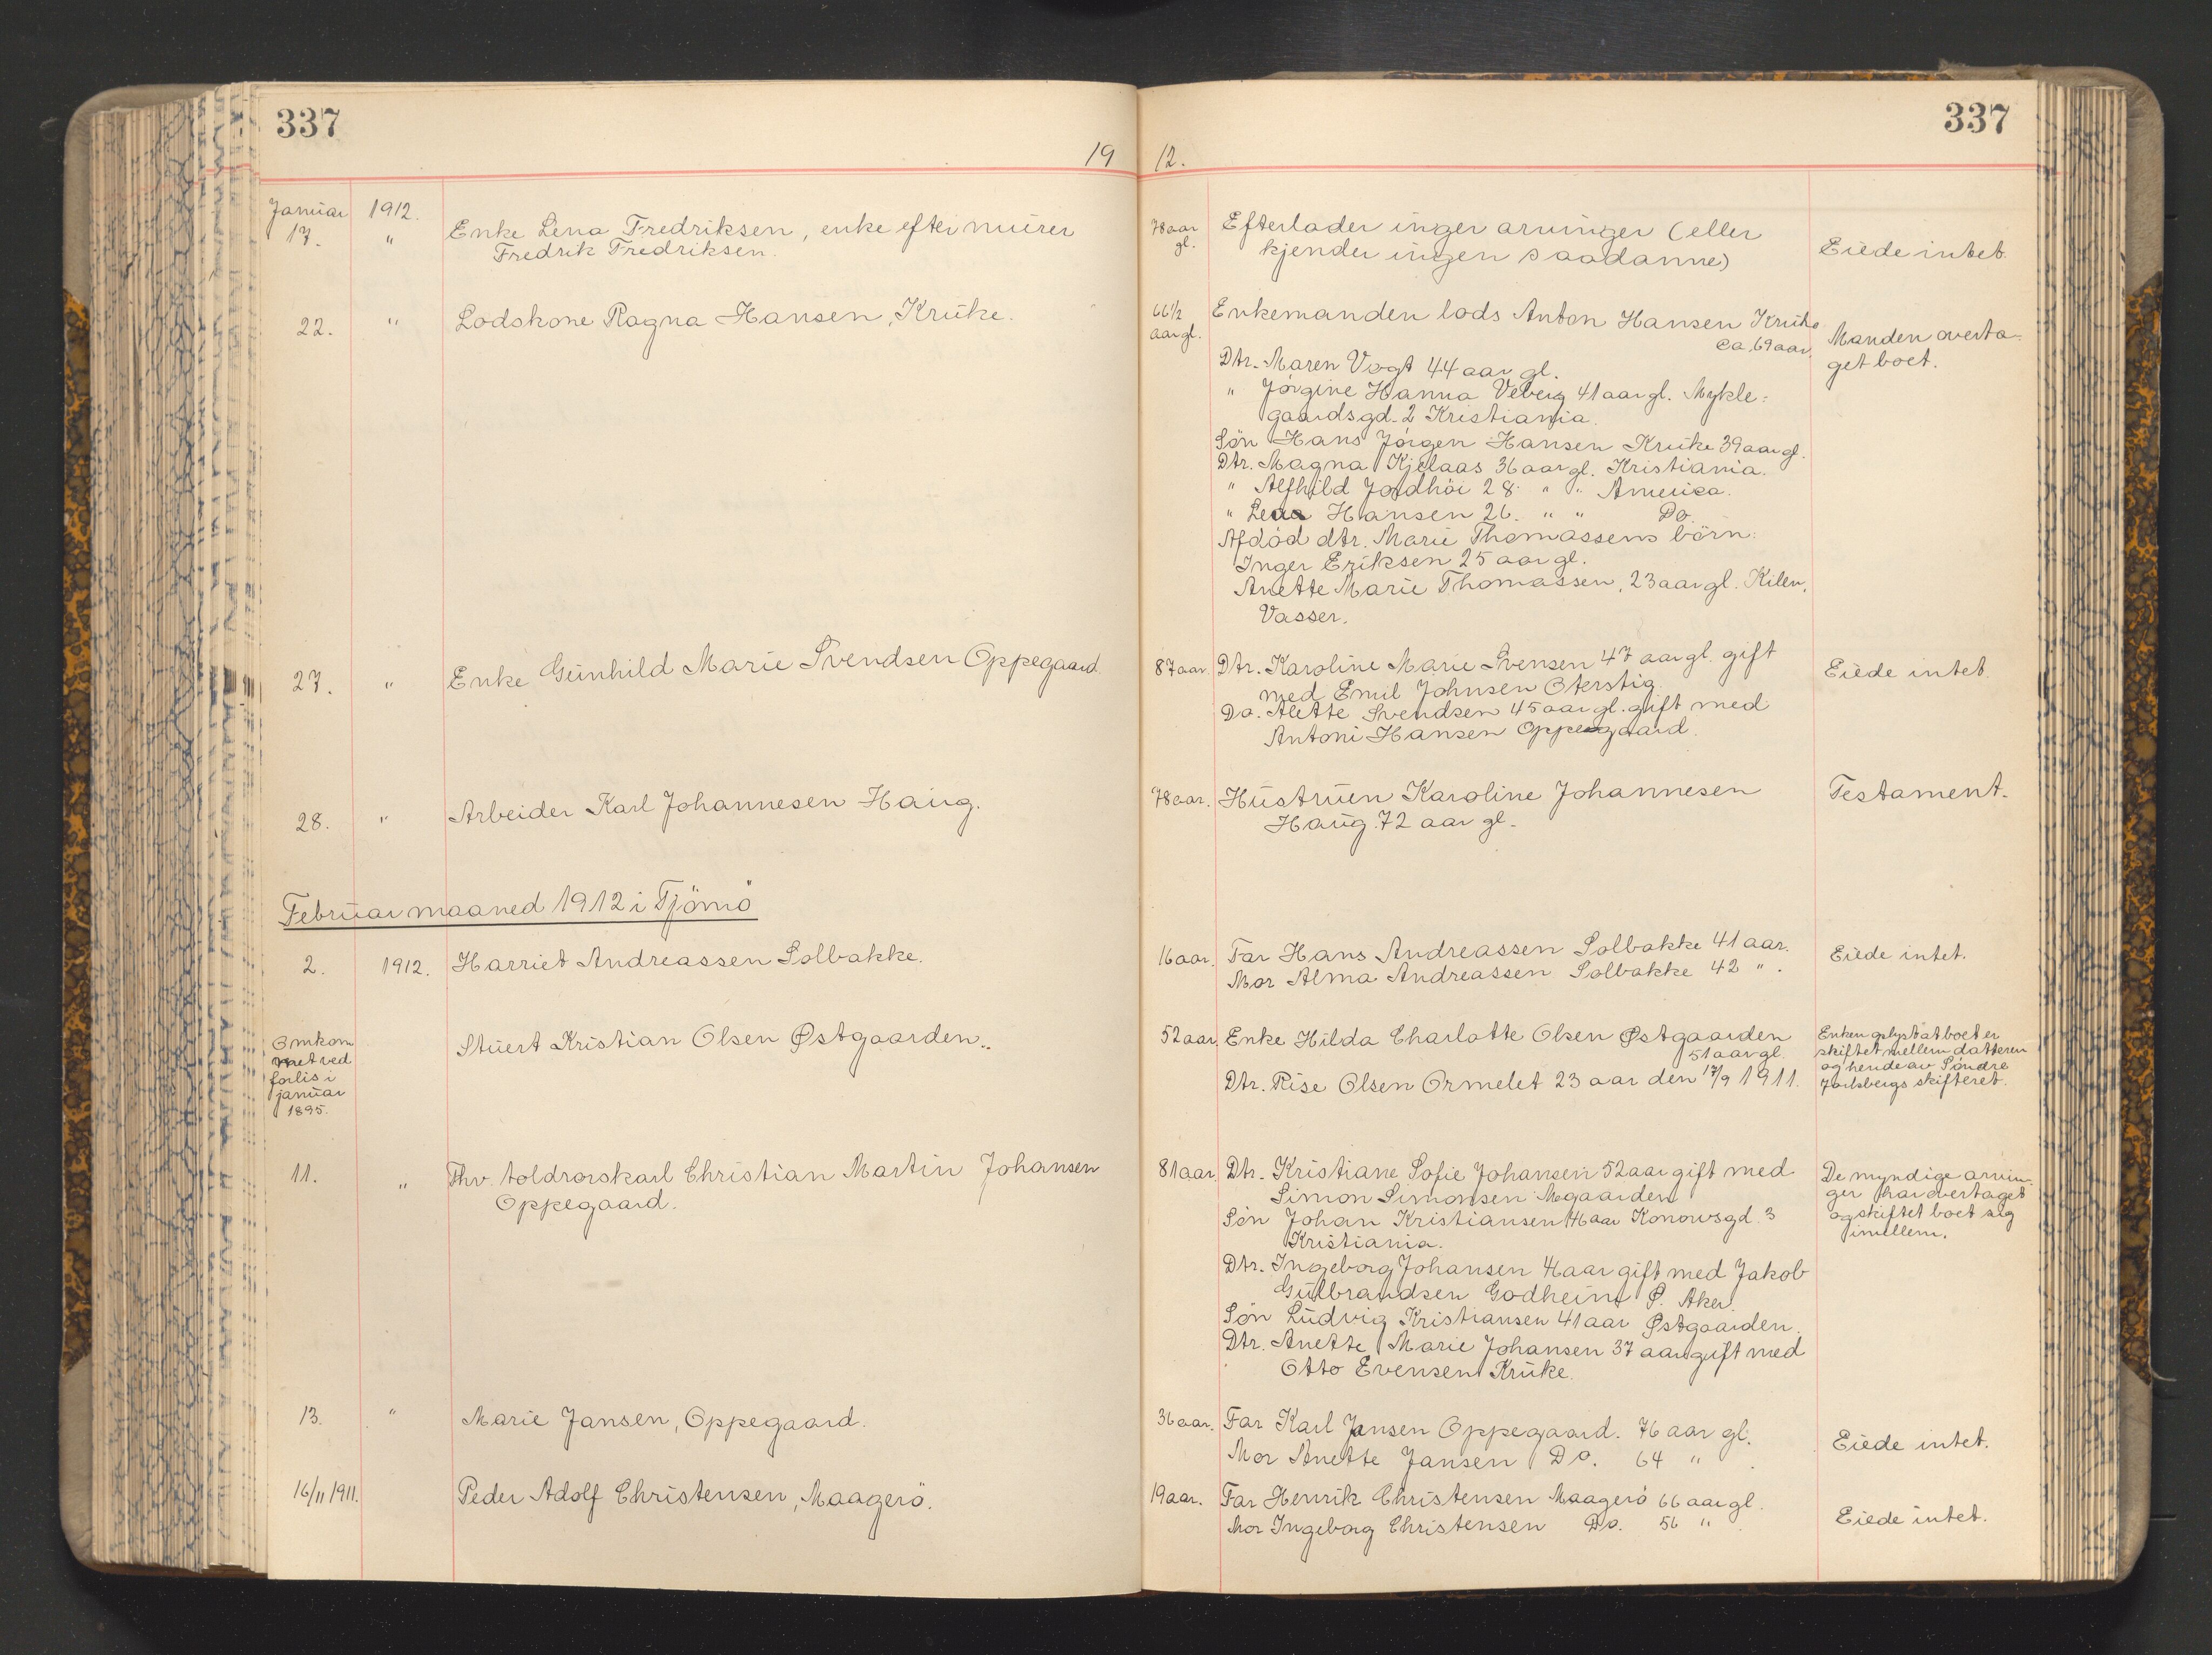 337
337
19 12.
Januar 1912.
17. " Enke Lena Fredriksen, enke efter murer
Fredrik Fredriksen.
78 aar gl.
Efterlader ingen arvinger (eller
kjender ingen saadanne)
Eiede intet.
22. " Lodskone Ragna Hansen, Kruke.
66 1/2 aar gl.
Enkemanden lods Anton Hansen Kruke
ca. 69 aar.
Dtr. Maren Vogt 44 aar gl.
" Jörgine Hanna Veberg 41 aar gl. Mykle=
gaardsgd. 2 Kristiania.
Sön Hans Jörgen Hansen Kruke 39 aar gl.
Dtr. Magna Kjelaas 36 aar gl. Kristiania.
" Alfhild Jordhöi 28 " " America.
" Lena Hansen 26. " " Do.
Afdöd dtr. Marie Thomassens börn:
Inger Eriksen 25 aar gl.
Anette Marie Thomassen, 23 aar gl. Kilen,
Vasser.
Manden overta-
get boet.
27. " Enke Gunhild Marie Svendsen Oppegaard.
87 aar.
Dtr. Karoline Marie Svensen 47 aar gl. gift
med Emil Johnsen Oterstig.
Do. Alette Svendsen 45 aar gl. gift med
Antoni Hansen Oppegaard.
Eiede intet.
28. " Arbeider Karl Johannesen Haug.
78 aar.
Hustruen Karoline Johannesen
Haug 72 aar gl.
Testament.
Februar maaned 1912 i Tjömö
2. 1912. Harriet Andreassen Solbakke.
16 aar.
Far Hans Andreassen Solbakke 41 aar.
Mor Alma Andreassen Solbakke 42 ".
Eiede intet.
Omkom
met ved
forlis i
januar
1895.
Stuert Kristian Olsen Østgaarden.
52 aar
Enke Hilda Charlotte Olsen Østgaarden
51 aar gl.
Dtr. Rise Olsen Ormelet 23 aar den 17/9 1911.
Enken oplyst at boet er
skiftet mellem datteren
og hende av Söndre
Jarlsbergs skifteret.
11. " Fhv. toldrorskarl Christian Martin Johansen
Oppegaard.
81 aar
Dtr. Kristiane Sofie Johansen 52 aar gift med
Simon Simonsen Mgaarden
Sön Johan Kristiansen 46 aar Konowsgd. 3
Kristiania.
Dtr. Ingeborg Johansen 41 aar gift med Jakob
Gulbrandsen Godheim Ø. Aker.
Sön Ludvig Kristiansen 41 aar Østgaarden.
Dtr. Anette Marie Johansen 37 aar gift med
Otto Evensen Kruke.
De myndige arvin-
ger har overtaget
og skiftet boet sig
imellem.
13. " Marie Jansen, Oppegaard.
36 aar.
Far Karl Jansen Oppegaard. 76 aar gl.
Mor Anette Jansen Do. 64 "
Eiede intet.
16/11 1911. Peder Adolf Christensen, Maagerö.
19 aar.
Far Henrik Christensen Maagerö 66 aar gl.
Mor Ingeborg Christensen Do. 56 "
Eiede intet.